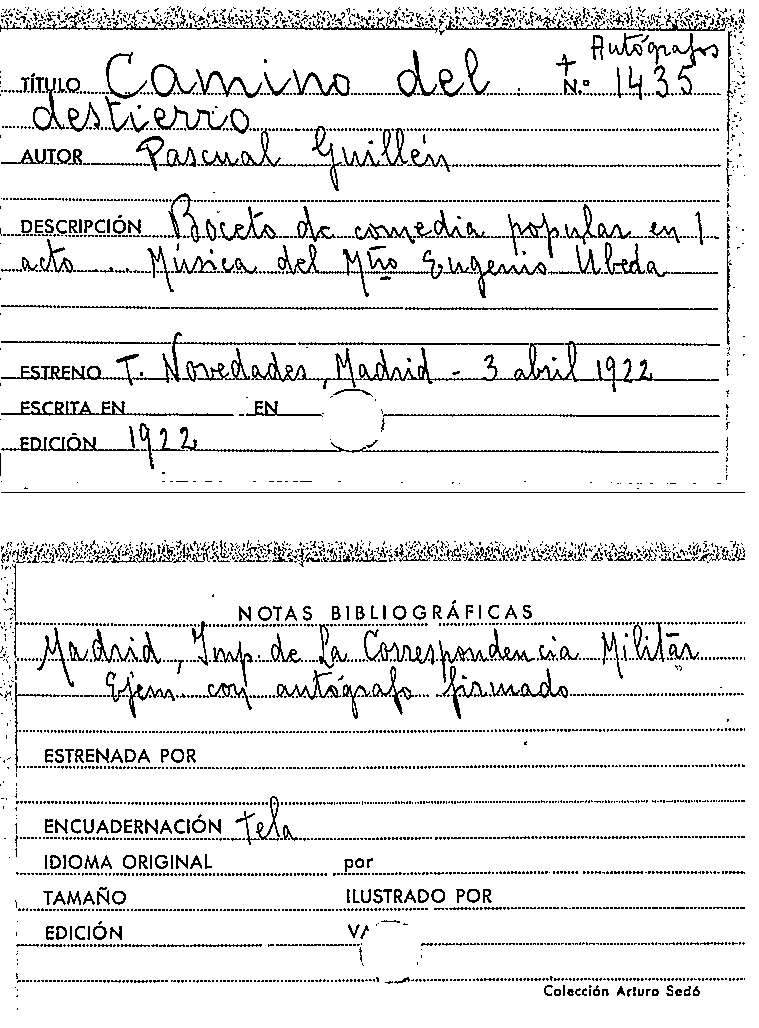 + Autógrafos
TÍTULO Camino del N.º 1435
destierro
AUTOR Pascual Guillén
DESCRIPCIÓN Boceto de comedia popular en 1
acto... Música del Mtro Eugenio Ubeda
ESTRENO T. Novedades, Madrid - 3 abril 1922
ESCRITA EN EN
EDICIÓN 1922
NOTAS BIBLIOGRÁFICAS
Madrid, Imp. de La Correspondencia Militar
Ejem con autógrafo firmado
ESTRENADA POR
ENCUADERNACIÓN tela
IDIOMA ORIGINAL por
TAMAÑO ILUSTRADO POR
EDICIÓN
Colección Arturo Sedó